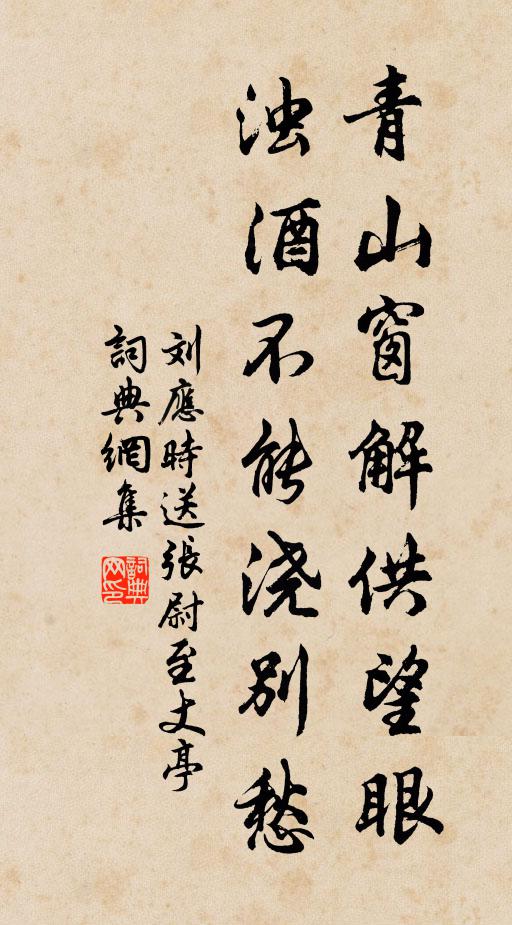 青山窗解供望眼
浊酒不能浇别愁
刘應時送張尉至丈亭
詞典網集
詞典网印